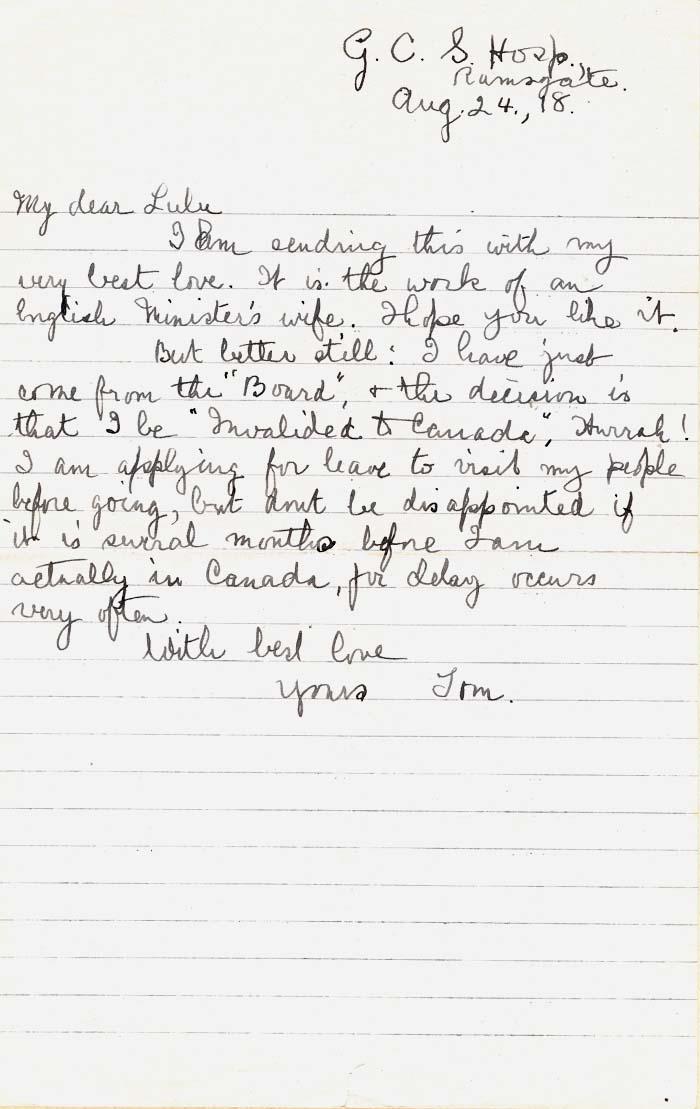 G. C. S. Hosp.,
Ramsgate.
Aug. 24., 18.
My dear Lulu
I am sending this with my
very best love. It is the work of an
English Minister's wife. I hope you like it.
But better still: I have just
come from the "Board", & the decision is
that I be "Invalided to Canada", Hurrah!
I am applying for leave to visit my people
before going, but dont be disappointed if
it is sevral months before I am
actually in Canada, for delay occurs
very often.
With best love
Yours Tom.